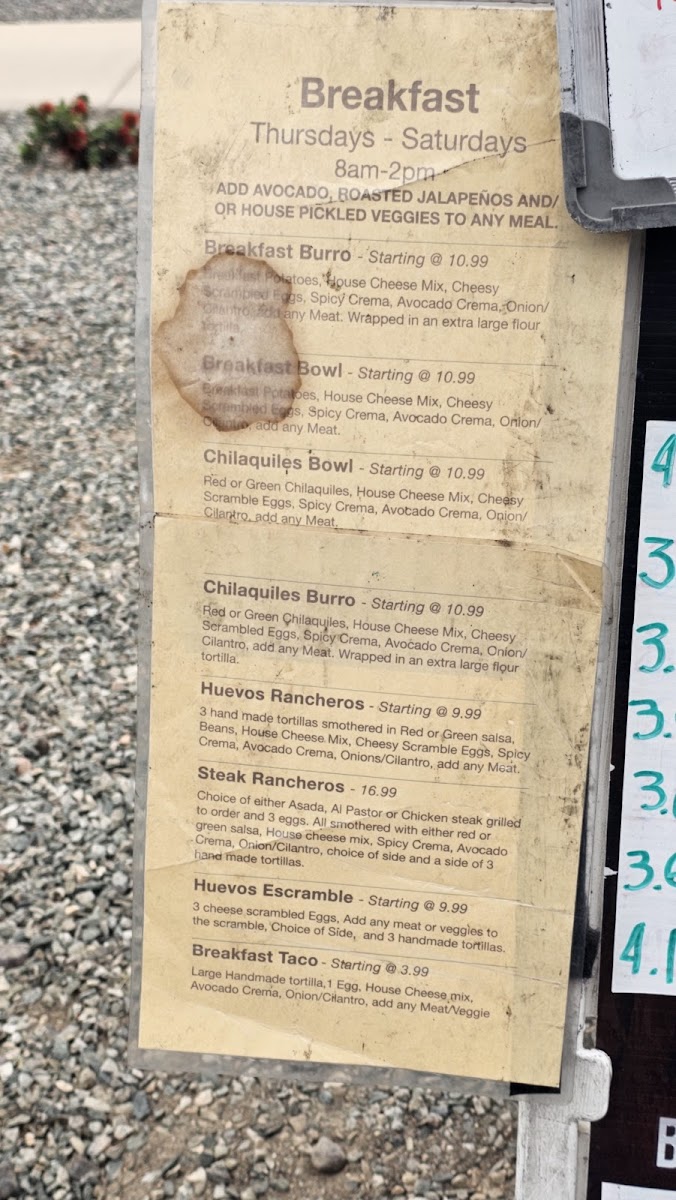 Breakfast
Thursdays - Saturdays
8am-2pm
ADD AVOCADO, ROASTED JALAPEÑOS AND/
OR HOUSE PICKLED VEGGIES TO ANY MEAL.
Breakfast Burro - Starting @ 10.99
Breakfast Potatoes, House Cheese Mix, Cheesy
Scrambled Eggs, Spicy Crema, Avocado Crema, Onion/
Cilantro, add any Meat. Wrapped in an extra large flour
tortilla.
Breakfast Bowl - Starting @ 10.99
Breakfast Potatoes, House Cheese Mix, Cheesy
Scrambled Eggs, Spicy Crema, Avocado Crema, Onion/
Cilantro, add any Meat.
Chilaquiles Bowl - Starting @ 10.99
Red or Green Chilaquiles, House Cheese Mix, Cheesy
Scramble Eggs, Spicy Crema, Avocado Crema, Onion/
Cilantro, add any Meat.
Chilaquiles Burro - Starting @ 10.99
Red or Green Chilaquiles, House Cheese Mix, Cheesy
Scrambled Eggs, Spicy Crema, Avocado Crema, Onion/
Cilantro, add any Meat. Wrapped in an extra large flour
tortilla.
Huevos Rancheros - Starting @ 9.99
3 hand made tortillas smothered in Red or Green salsa,
Beans, House Cheese Mix, Cheesy Scramble Eggs, Spicy
Crema, Avocado Crema, Onions/Cilantro, add any Meat.
Steak Rancheros - 16.99
Choice of either Asada, Al Pastor or Chicken steak grilled
to order and 3 eggs. All smothered with either red or
green salsa, House cheese mix, Spicy Crema, Avocado
Crema, Onion/Cilantro, choice of side and a side of 3
hand made tortillas.
Huevos Escramble - Starting @ 9.99
3 cheese scrambled Eggs, Add any meat or veggies to
the scramble, Choice of Side, and 3 handmade tortillas.
Breakfast Taco - Starting @ 3.99
Large Handmade tortilla,1 Egg, House Cheese mix,
Avocado Crema, Onion/Cilantro, add any Meat/Veggie